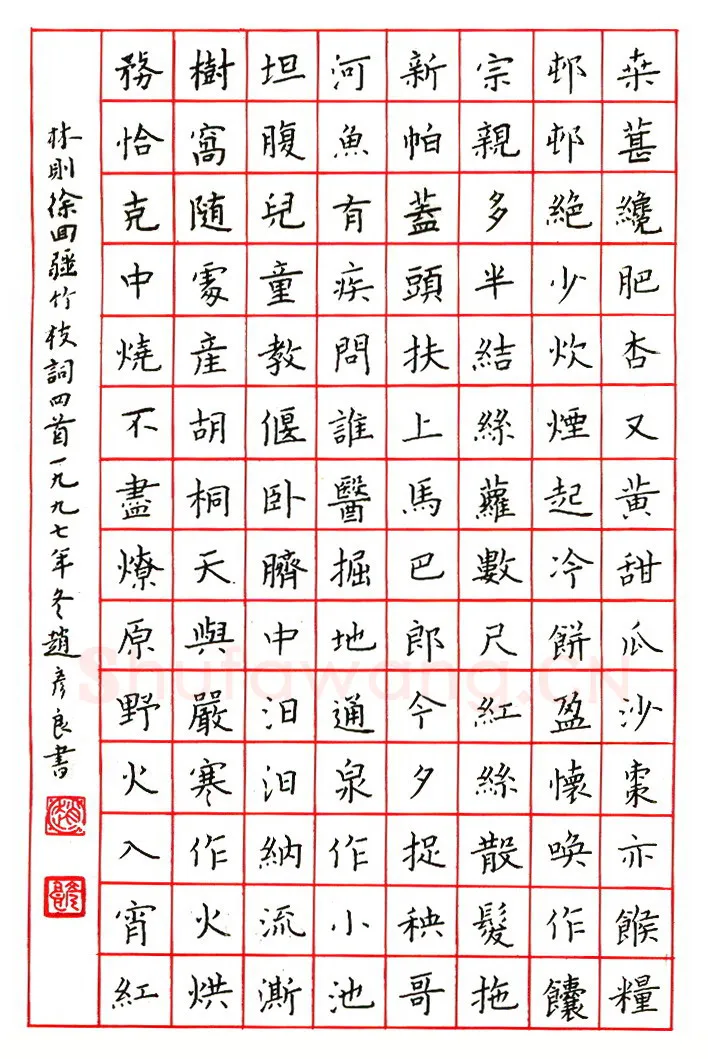 桒葚纔肥杏又黄甜瓜沙棗亦餱糧
邨邨絶少炊煙起冷餅盈懷喚作饢
宗親多半結絲蘿數尺紅絲散髮拖
新帕蓋頭扶上馬巴郎今夕捉秧哥
河魚有疾問誰醫掘地通泉作小池
坦腹兒童教偃卧臍中汩汩納流澌
樹窩随處産胡桐天與嚴寒作火烘
務恰克中燒不盡燎原野火入宵紅
林則徐回疆竹枝詞四首一九九七年冬趙彦良書
Shufawang.CN